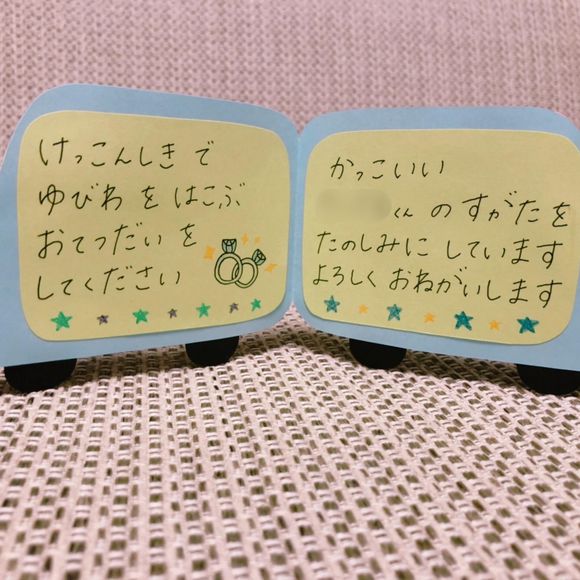 けっこんしきで
ゆびわをはこぶ
おてつだいを
してください
かっこいい
くんのすがたを
たのしみにしています
よろしくおねがいします